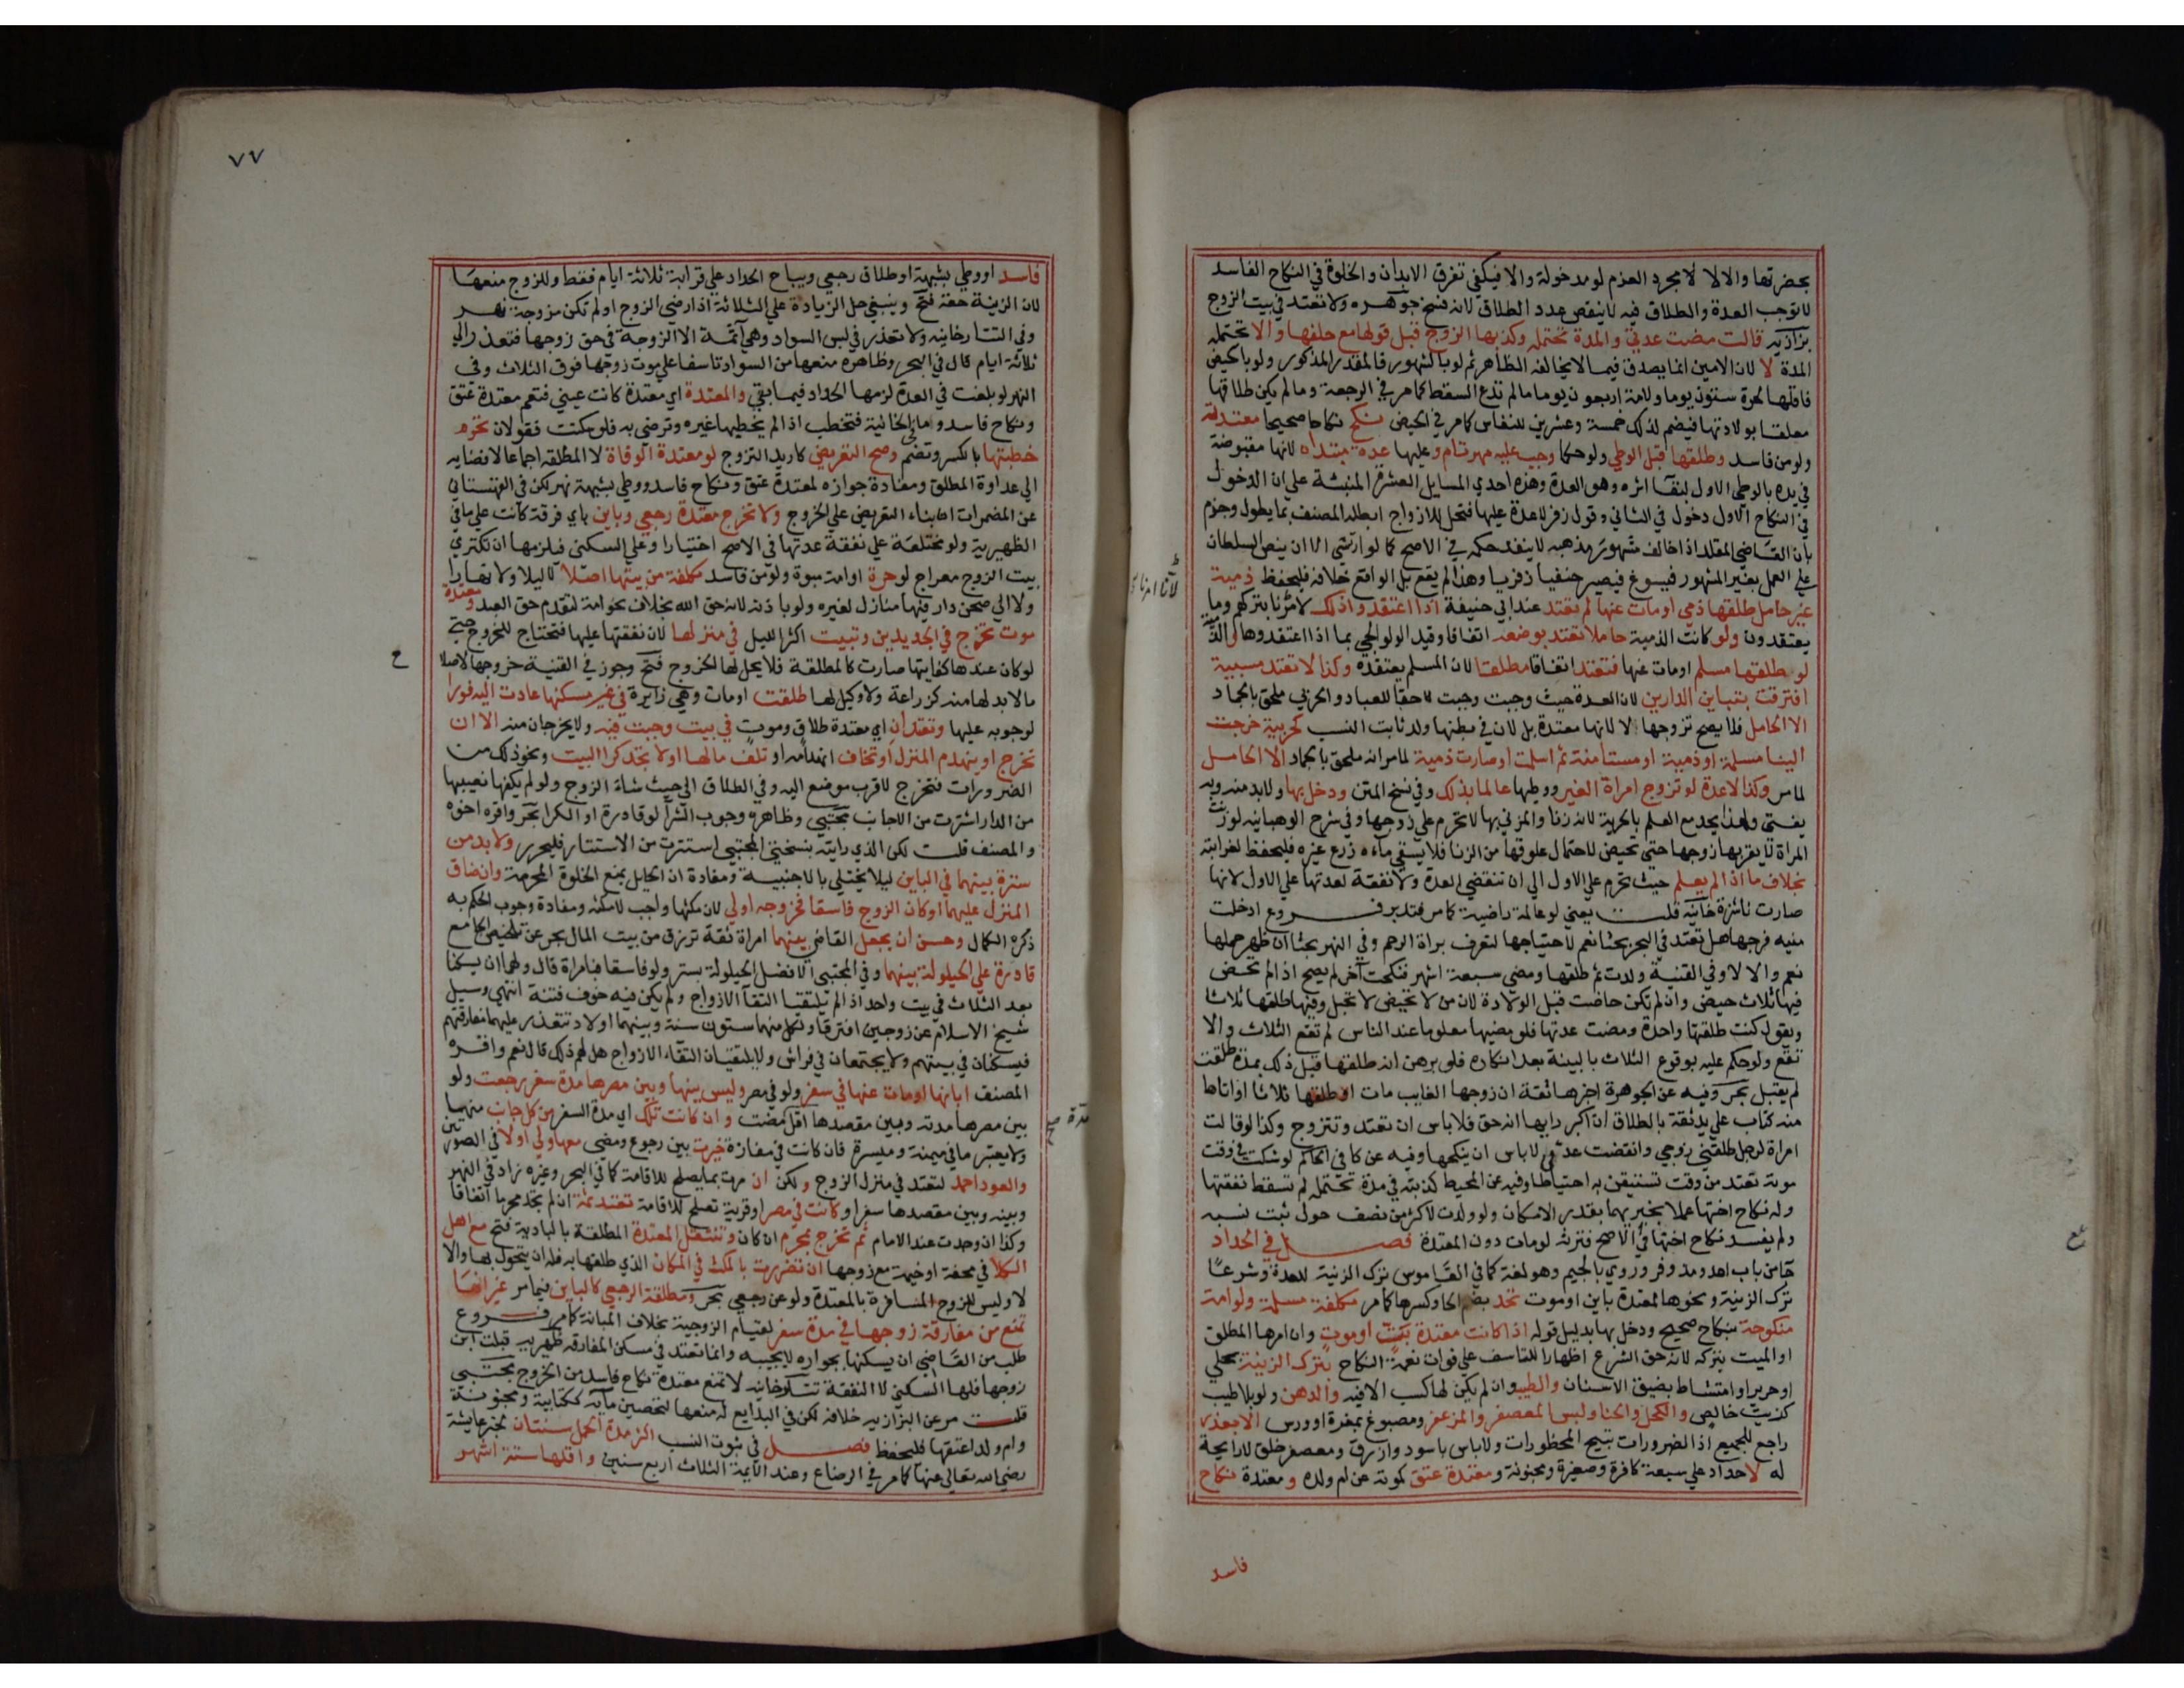 بحضرتها والا لا لا مجرد العزم لو مدخولة والا فيكفي تفرق الابدان والخلوة في النكاح الفاسد
لا توجب العدة والطلاق فيه لا ينقص عدد الطلاق لانه فسخ جوهره ولا تعتد في بيت الزوج
بزازيه قالت مضت عدتي والمدة تحتمله وكذبها الزوج قبل قولها مع حلفها والا تحتمله
المدة لا لان الامين انما يصدق فيما لا يخالفه الظاهر ثم لو بالشهور فالمقدر المذكور ولو بالحيض
فاقلها لحرة ستون يوما ولامة اربعون يوما ما لم تدع السقط كما مر في الرجعة وما لم يكن طلاقها
معلقا بولادتها فيضم لذلك خمسة وعشرين للنفاس كما مر في الحيض نكح نكاحا صحيحا معتدته
ولو من فاسد وطلقها قبل الوطي ولو حكما وجب عليه مهر تام وعليها عدة مبتداه لانها مقبوضة
في يده بالوطي الاول لبقا اثره وهو العدة وهذه احدي المسايل العشرة المنبئة علي ان الدخول
في النكاح الاول دخول في الثاني وقول زفر لا عدة عليها فتحل للازواج ابطله المصنف بما يطول وجزم
بان القاضي المقلد اذا خالف مشهور مذهبه لا ينفذ حكمه في الاصح كما لو ارتشي الا ان ينص السلطان
علي العمل بغير المشهور فيسوغ فيصير حنفيا زفريا وهذا لم يقع بل الواقع خلافه فليحفظ ذمية
غير حامل طلقها ذمي او مات عنها لم تعتد عند ابي حنيفة اذا اعتقدوا ذلك لامرنا بتركهم وما
يعتقدون ولو كانت الذمية حاملا تعتد بوضعه اتفاقا وقيد الولوالجي بما اذا اعتقدوها
لو طلقها مسلم او مات عنها فتعتد اتفاقا مطلقا لان المسلم يعتقده وكذا لا تعتد مسبية
افترقت بتباين الدارين لان العدة حيث وجبت وجبت لاحقا للعباد والحربي ملحق بالجماد
الا الحامل فلا يصح تزوجها لا لانها معتدة بل لان في بطنها ولد ثابت النسب كحربية خرجت
الينا مسلمة او ذمية او مستامنة ثم اسلمت او صارت ذمية لما مر انه ملحق بالجماد الا الحامل
لما مر وكذا لا عدة لو تزوج امراة الغير ووطيها عالما بذلك وفي نسخ المتن ودخل بها ولا بد منه وبه
يفتي ولهذا يحد مع العلم بالحرمة لانه زنا والمزني بها لا تحرم علي زوجها وفي شرح الوهبانيه لو زنت
المراة لا يقربها زوجها حتي تحيض لاحتمال علوقها من الزنا فلا يسقي ماءه زرع غيره فليحفظ لغرابته
بخلاف ما اذا لم يعلم حيث تحرم علي الاول الي ان تنقضي العدة ولا نفقة لعدتها علي الاول لانها
صارت ناشزة خانيه قلت يعني لو عالمة راضية كما مر فتدبر فروع ادخلت
منيه فرجها هل تعتد في البحر بحثا نعم لاحتياجها لتعرف براة الرحم وفي النهر بحثا ان ظهر حملها
نعم والا لا وفي القنية ولدت ثم طلقها ومضي سبعة اشهر فنكحت اخر لم يصح اذا لم تحض
فيها ثلاث حيض وان لم تكن حاضت قبل الولادة لان من لا تحيض لا تحبل وفيها طلقها ثلاثا
ويقول كنت طلقتها واحدة ومضت عدتها فلو مضيها معلوما عند الناس لم تقع الثلاث والا
تقع ولو حكم عليه بوقوع الثلاث بالبينة بعد انكاره فلو برهن انه طلقها قبل ذلك بمدة طلقت
لم يقبل بحر وفيه عن الجوهرة اخبرها ثقة ان زوجها الغايب مات او طلقها ثلاثا او اتاها
منه كتاب علي يد ثقة بالطلاق ان اكبر رايها انه حق فلا باس ان تعتد وتتزوج وكذا لو قالت
امراة لرجل طلقني زوجي وانقضت عدتي لا باس ان ينكحها وفيه عن كافي الحاكم لو شكت في وقت
موته تعتد من وقت تستيقن به احتياطا وفيه عن المحيط كذبته في مدة تحتمله لم تسقط نفقتها
وله نكاح اختها عملا بخبريهما بقدر الامكان ولو ولدت لاكثر من نصف حول ثبت نسبه
ولم يفسد نكاح اختها في الاصح فترثه لو مات دون المعتدة فصل في الحداد
جا من باب اعد ومد وفر وروي بالجيم وهو لغة كما في القاموس ترك الزينة للعدة وشرعا
ترك الزينة ونحوها لمعتدة باين او موت تحد بضم الحا وكسرها كما مر مكلفة مسلمة ولو امة
منكوحة بنكاح صحيح ودخل بها بدليل قوله اذا كانت معتدة بت او موت وان امرها المطلق
او الميت بتركه لانه حق الشرع اظهارا للتاسف علي فوات نعمة النكاح بترك الزينة بحلي
او حرير او امتشاط بضيق الاسنان والطيب وان لم يكن لها كسب الا فيه والدهن ولو بلا طيب
كزيت خالص والكحل والحنا ولبس المعصفر والمزعفر ومصبوغ بمغرة او ورس الا بعذر
راجع للجميع اذا الضرورات تبيح المحظورات ولا باس باسود وازرق ومعصفر خلق لا رايحة
له لا حداد علي سبعة كافرة وصغيرة ومجنونة ومعتدة عتق كموته عن ام ولده ومعتدة نكاح
فاسد
٧٧
فاسد او وطي بشبهة او طلاق رجعي ويباح الحداد علي قرابة ثلاثة ايام فقط وللزوج منعها
لان الزينة حقه فتح وينبغي حل الزيادة علي الثلاثة اذا رضي الزوج او لم تكن مزوجة نهر
وفي التتارخانيه ولا تعذر في لبس السواد وهي آثمة الا الزوجة في حق زوجها فتعذر الي
ثلاثة ايام قال في البحر وظاهره منعها من السواد تاسفا علي موت زوجها فوق الثلاث وفي
النهر لو بلغت في العدة لزمها الحداد فيما بقي والمعتدة اي معتدة كانت عيني فتعم معتدة عتق
ونكاح فاسد واما الخالية فتخطب اذا لم يخطبها غيره وترضي به فلو سكتت فقولان تحرم
خطبتها بالكسر وتضم وصح التعريض كاريد التزوج لو معتدة الوفاة لا المطلقة اجماعا لافضايه
الي عداوة المطلق ومفادة جوازه لمعتدة عتق ونكاح فاسد ووطي بشبهة نهر لكن في القهستاني
عن المضمرات ان بناء التعريض علي الخروج ولا تخرج معتدة رجعي وباين باي فرقة كانت علي ما في
الظهيرية ولو مختلعة علي نفقة عدتها في الاصح اختيارا وعلي السكني فيلزمها ان تكتري
بيت الزوج معراج لو حرة او امة مبوة ولو من فاسد مكلفة من بيتها اصلا لا ليلا ولا نهارا
ولا الي صحن دار فيها منازل لغيره ولو باذنه لانه حق الله بخلاف نحو امة لتقدم حق العبد ومعتدة
موت تخرج في الجديدين وتبيت اكثر الليل في منزلها لان نفقتها عليها فتحتاج للخروج حتي
لو كان عندها كفايتها صارت كالمطلقة فلا يحل لها الخروج فتح وجوز في القنية خروجها لاصلاح
ح
ما لا بد لها منه كزراعة ولا وكيل لها طلقت او مات وهي زايرة في غير مسكنها عادت اليه فورا
لوجوبه عليها وتعتدان اي معتدة طلاق وموت في بيت وجبت فيه ولا يخرجان منه الا ان
تخرج او ينهدم المنزل او تخاف انهدامه او تلف مالها او لا تجد كرا البيت ونحو ذلك من
الضرورات فتخرج لاقرب موضع اليه وفي الطلاق الي حيث شاء الزوج ولو لم يكفها نصيبها
من الدار اشترت من الاجانب مجتبي وظاهره وجوب الشرا لو قادرة او الكرا بحر واقره اخوه
والمصنف قلت لكن الذي رايته بنسختي المجتبي استترت من الاستتار فليحرر ولا بد من
سترة بينهما في الباين ليلا يختلي بالاجنبية ومفادة ان الحايل يمنع الخلوة المحرمة وان ضاق
المنزل عليهما او كان الزوج فاسقا فخروجه اولي لان مكثها واجب لا مكثه ومفادة وجوب الحكم به
ذكره الكمال وحسن ان يجعل القاضي بينهما امراة ثقة ترزق من بيت المال بحر عن تلخيص الجامع
قادرة علي الحيلولة بينهما وفي المجتبي الافضل الحيلولة بستر ولو فاسقا فبامراة قال ولهما ان يسكنا
بعد الثلاث في بيت واحد اذا لم يلتقيا التقآ الازواج ولم يكن فيه خوف فتنة انتهي وسيل
شيخ الاسلام عن زوجين افترقا ولكل منهما ستون سنة وبينهما اولاد تتعذر عليهما مفارقتهم
فيسكنان في بيتهم ولا يجتمعان في فراش ولا يلتقيان التقآء الازواج هل لهم ذلك قال نعم واقره
المصنف ابانها او مات عنها في سفر ولو في مصر وليس بينها وبين مصرها مدة سفر رجعت ولو
بين مصرها مدته وبين مقصدها اقل مضت وان كانت تلك اي مدة السفر من كل جانب منهما
ولا يعتبر ما في ميمنة وميسرة فان كانت في مفازة خيرت بين رجوع ومضي معها ولي او لا في الصورتين
والعود احمد لتعتد في منزل الزوج ولكن ان مرت بما يصلح للاقامة كما في البحر وغيره زاد في النهر
وبينه وبين مقصدها سفر او كانت في مصر او قرية تصلح للاقامة تعتد ثمة ان لم تجد محرما اتفاقا
وكذا ان وجدت عند الامام ثم تخرج بمحرم ان كان وتنتقل المعتدة المطلقة بالبادية فتح مع اهل
الكلا في محفة او خيمة مع زوجها ان تضررت بالمكث في المكان الذي طلقها به فله ان يتحول بها والا
لا وليس للزوج المسافرة بالمعتدة ولو عن رجعي بحر ومطلقة الرجعي كالباين فيما مر غير انها
تمنع من مفارقة زوجها في مدة سفر لقيام الزوجية بخلاف المبانة كما مر فروع
طلب من القاضي ان يسكنها بجواره لا يجيبه وانما تعتد في مسكن المفارقه ظهيريه قبلت ابن
زوجها فلها السكني لا النفقة تتارخانيه لا تمنع معتدة نكاح فاسد من الخروج مجتبي
قلت مر عن البزازيه خلافه لكن في البدايع له منعها لتحصين مآيه ككتابية ومجنونة
وام ولد اعتقها فليحفظ فصل في ثبوت النسب اكثر مدة الحمل سنتان لخبر عايشة
رضي الله تعالي عنها كما مر في الرضاع وعند الايمة الثلاث اربع سنين واقلها ستة اشهر